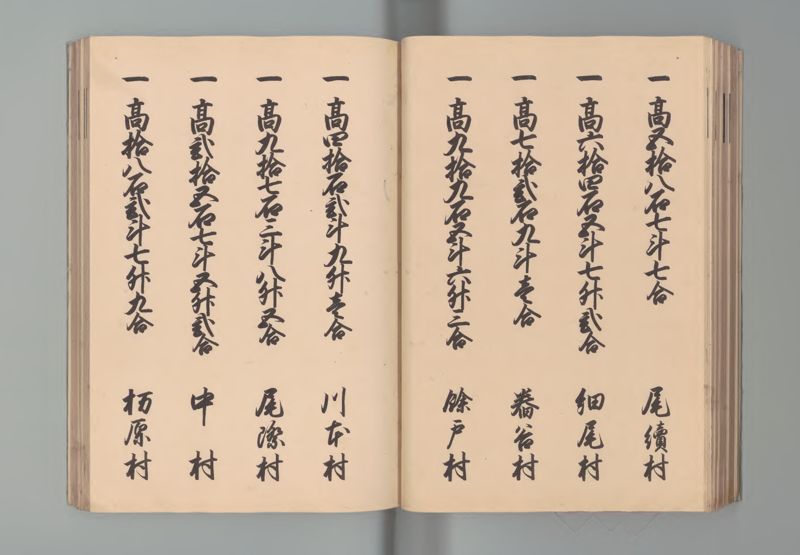 一高五拾八石七斗七合 尾續村
一高六拾四石五斗七升弐合 細尾村
一高七拾弐石九斗壱合 番谷村
一高九拾九石五斗六升三合 餘戸村
一高四拾石弐斗九升壱合 川本村
一高九拾七石三斗八升五合 尾際村
一高弐拾五石七斗五升弐合 中村
一高拾八石弐斗七升九合 栃原村